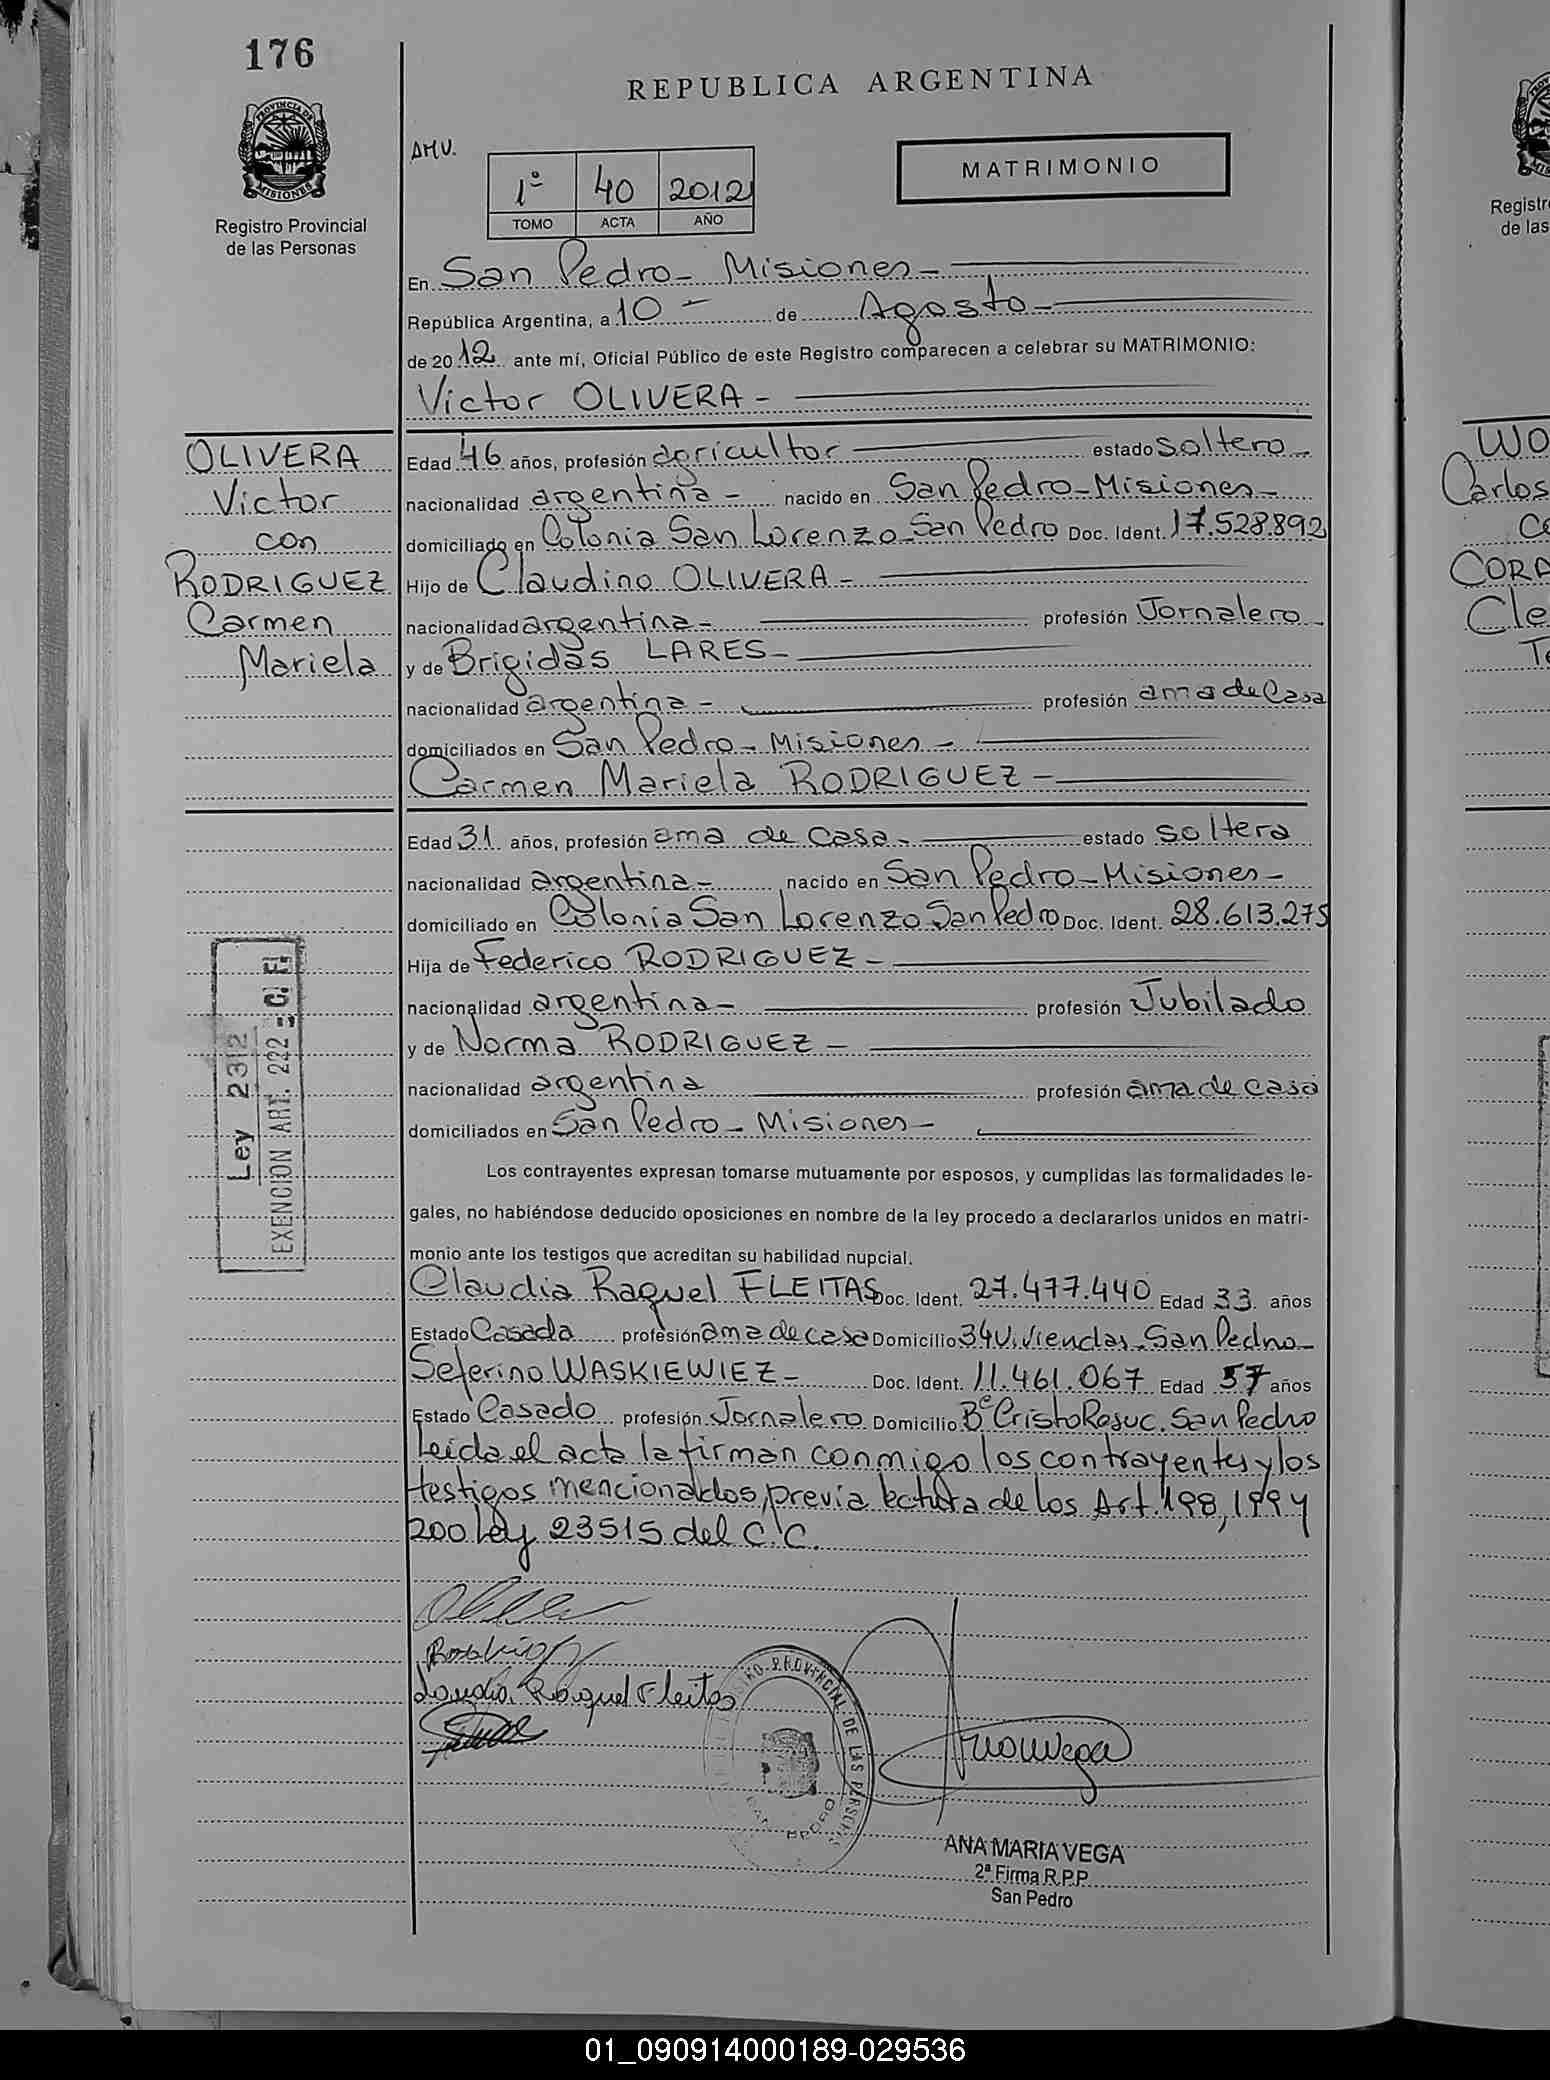 176
REPUBLICA ARGENTINA
PROVINCIA DE
MISIONES
Registro Provincial
de las Personas
AMV.
1º 40 2012
TOMO ACTA AÑO
MATRIMONIO
En San Pedro - Misiones -
República Argentina, a 10 - de Agosto -
de 2012 ante mí, Oficial Público de este Registro comparecen a celebrar su MATRIMONIO:
Victor OLIVERA -
OLIVERA
Victor
con
RODRIGUEZ
Carmen
Mariela
Edad 46 años, profesión agricultor estado soltero -
nacionalidad argentina - nacido en San Pedro - Misiones -
domiciliado en Colonia San Lorenzo - San Pedro Doc. Ident. 17.528.892
Hijo de Claudino OLIVERA -
nacionalidad argentina - profesión Jornalero -
y de Brigidas LARES -
nacionalidad argentina - profesión ama de Casa
domiciliados en San Pedro - Misiones -
Carmen Mariela RODRIGUEZ -
Edad 31 años, profesión ama de casa - estado soltera
nacionalidad argentina - nacido en San Pedro - Misiones -
domiciliado en Colonia San Lorenzo San Pedro Doc. Ident. 28.613.275
Hija de Federico RODRIGUEZ -
nacionalidad argentina - profesión Jubilado
y de Norma RODRIGUEZ -
nacionalidad argentina profesión ama de casa
domiciliados en San Pedro - Misiones -
Ley 2312
EXENCION ART. 222 - C. F.
Los contrayentes expresan tomarse mutuamente por esposos, y cumplidas las formalidades le-
gales, no habiéndose deducido oposiciones en nombre de la ley procedo a declararlos unidos en matri-
monio ante los testigos que acreditan su habilidad nupcial.
Claudia Raquel FLEITAS Doc. Ident. 27.477.440 Edad 33 años
Estado Casada profesión ama de casa Domicilio 34 Viviendas - San Pedro -
Seferino WASKIEWIEZ - Doc. Ident. 11.461.067 Edad 57 años
Estado Casado profesión Jornalero Domicilio Bº Cristo Resuc. San Pedro
Leida el acta la firman conmigo los contrayentes y los
testigos mencionados, previa lectura de los Art. 198, 199 y
200 Ley 23515 del C.C.
Claudia Raquel Fleitas
REGISTRO PROVINCIAL DE LAS PERSONAS
SAN PEDRO
ANA MARIA VEGA
2ª Firma R.P.P.
San Pedro
Registr
de las
WO
Carlos
CORA
Cle
01_090914000189-029536